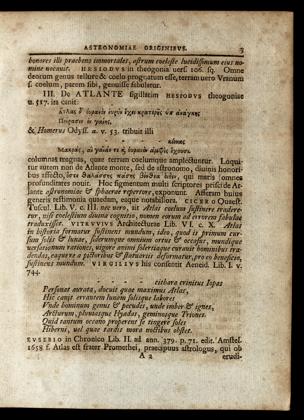 ASTRONOMIAE ORIGINIBUS. 3
hominis illi praebens immortales, astrum coeleste lucidissimum ejus no-
mine vocavit. HESIODUS in theogonia vers. 106. sq. Omne
deorum genus tellure & coelo prognatum esse, terram vero Vranum
s. coelum, parem sibi, genuisse fabulatur.
III. De ATLANTE sigillatim HESIODUS theogoniae
v. 517. ita canit
Ἄτλας δ' οὐρανὸν εὐρὺν ἔχει κρατερῆς ὑπ' ἀνάγκης
Πείρασιν ἐν γαίης,
& Homerus Odyss. α. v. 53. tribuit illi
κίονας
Μακρὰς, αἳ γαῖάν τε ἢ οὐρανὸν ἀμφὶς ἔχουσι.
columnas magnas, quae terram coelumque amplectuntur. Loqui-
tur autem non de Atlante monte, sed de astronomo, divinis honori-
bus affecto, ὅστε θαλάσσης πάσης βένθεα οἶδεν, qui maris omnes
profunditates novit. Hoc figmentum multi scriptores prisci de At-
lante astronomiae & sphaerae repertore, exponunt. Afferam hujus
generis testimonia quaedam, eaque notabiliora. CICERO Quaest.
Tuscul. Lib. V c. III. nec vero, ait Atlas coelum sustinere tradere-
tur, nisi coelestium divina cognitio, nomen eorum ad errorem fabulae
traduxisset. VITRUVIUS Architecturae Lib. VI. c. X. Atlas
in historia formatur sustinens mundum, ideo, quod is primum cur-
sum solis & lunae, siderumque omnium ortus & occasus, mundique
versationum rationes, vigore animi solertiaque curavit hominibus tra-
dendas, eaque re a pictoribus & statuariis deformatur, pro eo beneficio,
sustinens mundum. VIRGILIVS his consentit Aeneid. Lib. I. v.
744.
- - citbara crinitus Iopas
Personat aurata, docuit quae maximus Atlas,
Hic canit errantem lunam solisque labores
Vnde hominum genus & pecudes, unde imber & ignes,
Arcturum, pluviasque Hyadas, geminosque Triones.
Quid tantum oceano properent se tingere soles
Hiberni, vel quae tardis mora noctibus obstet.
EVSEBIO in Chronico Lib. II. ad ann. 379. p. 71. edit. Amstel.
1658 f. Atlas est frater Promethei, praecipuus astrologus, qui ob
A 2 erudi-